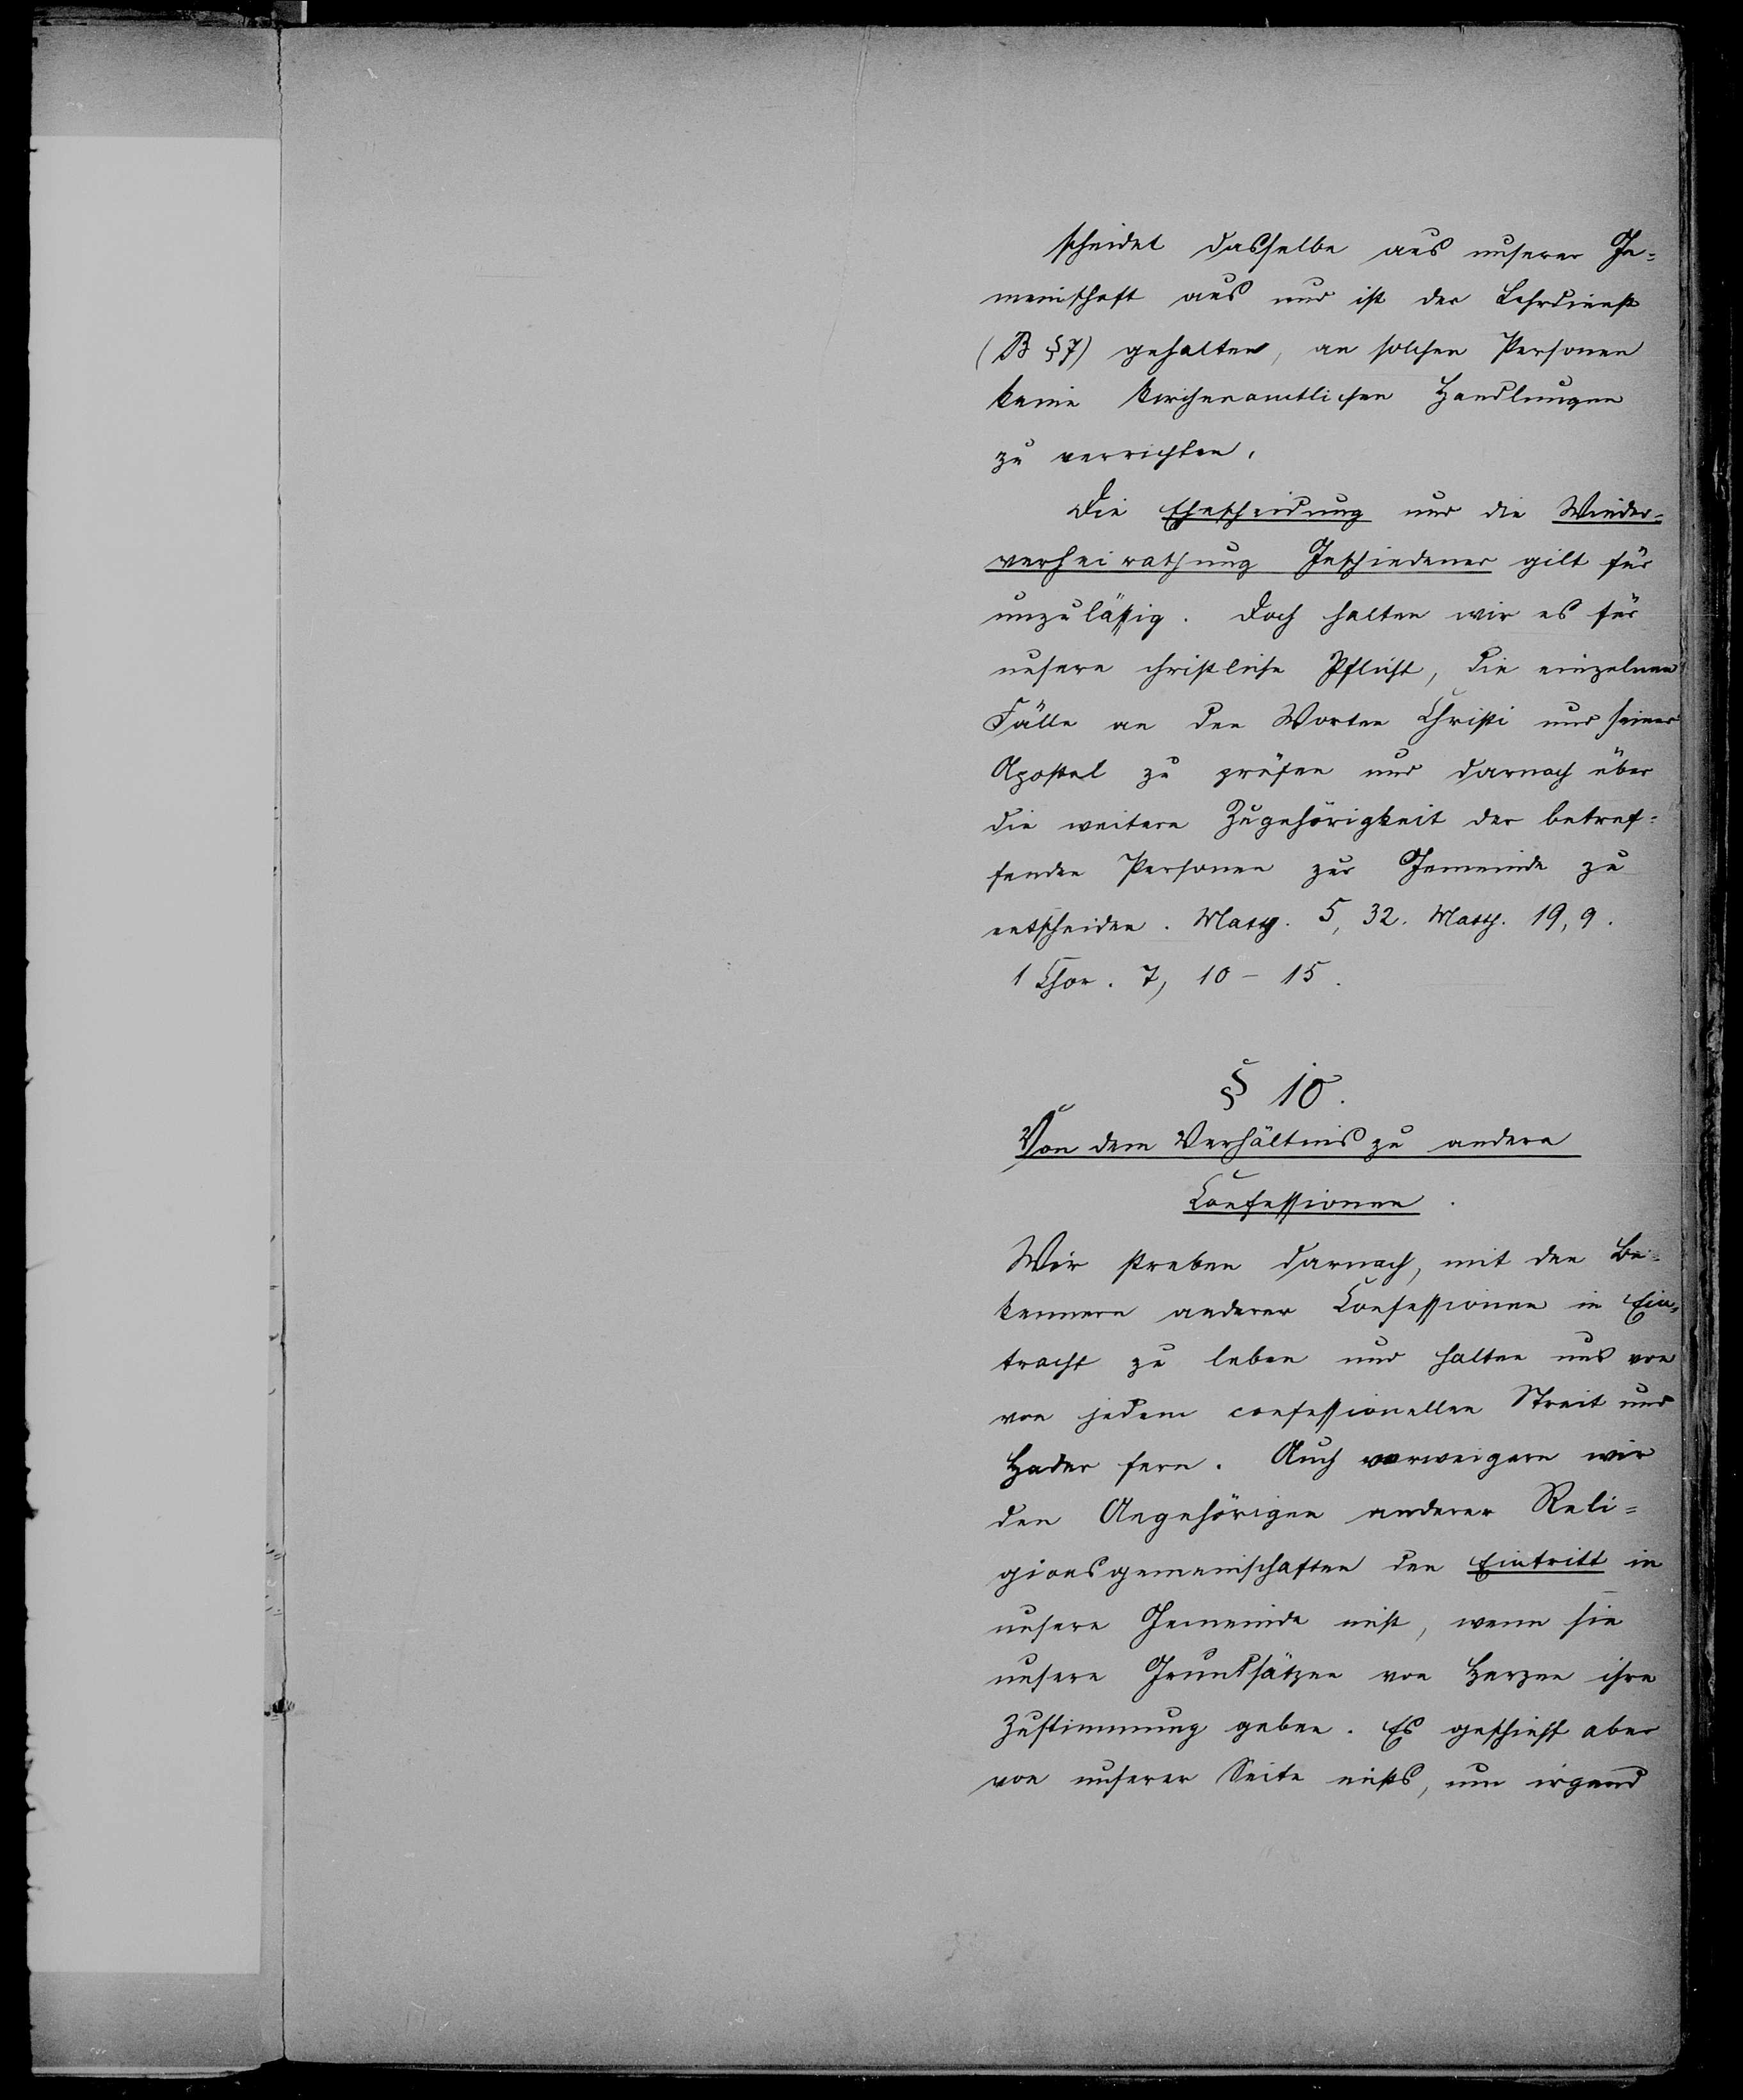 scheidet dasselbe aus unserer Ge=
meinschaft aus und ist der Lehrdienst
(B § 7) gehalten, an solchen Personen
keine kirchenamtlichen Handlungen
zu verrichten.
Die Ehescheidung und die Wieder=
verheirathung Geschiedener gilt für
unzulässig. Doch halten wir es für
unsere christliche Pflicht, die einzelnen
Fälle an den Worten Christi und seiner
Apostel zu prüfen und darnach über
die weitere Zugehörigkeit der betref=
fenden Personen zur Gemeinde zu
entscheiden. Matth. 5, 32. Matth. 19, 9.
1 Chor. 7, 10 – 15.
§ 10.
Von dem Verhältnis zu andern
Confessionen.
Wir streben darnach, mit den Be=
kennern anderer Confessionen in Ein=
tracht zu leben und halten uns von
von jedem confessionellen Streit und
Hader fern. Auch verweigern wir
den Angehörigen anderer Reli=
gionsgemeinschaften den Eintritt in
unsere Gemeinde nicht, wenn sie
unsern Grundsätzen von Herzen ihre
Zustimmung geben. Es geschieht aber
von unserer Seite nichts, um irgend